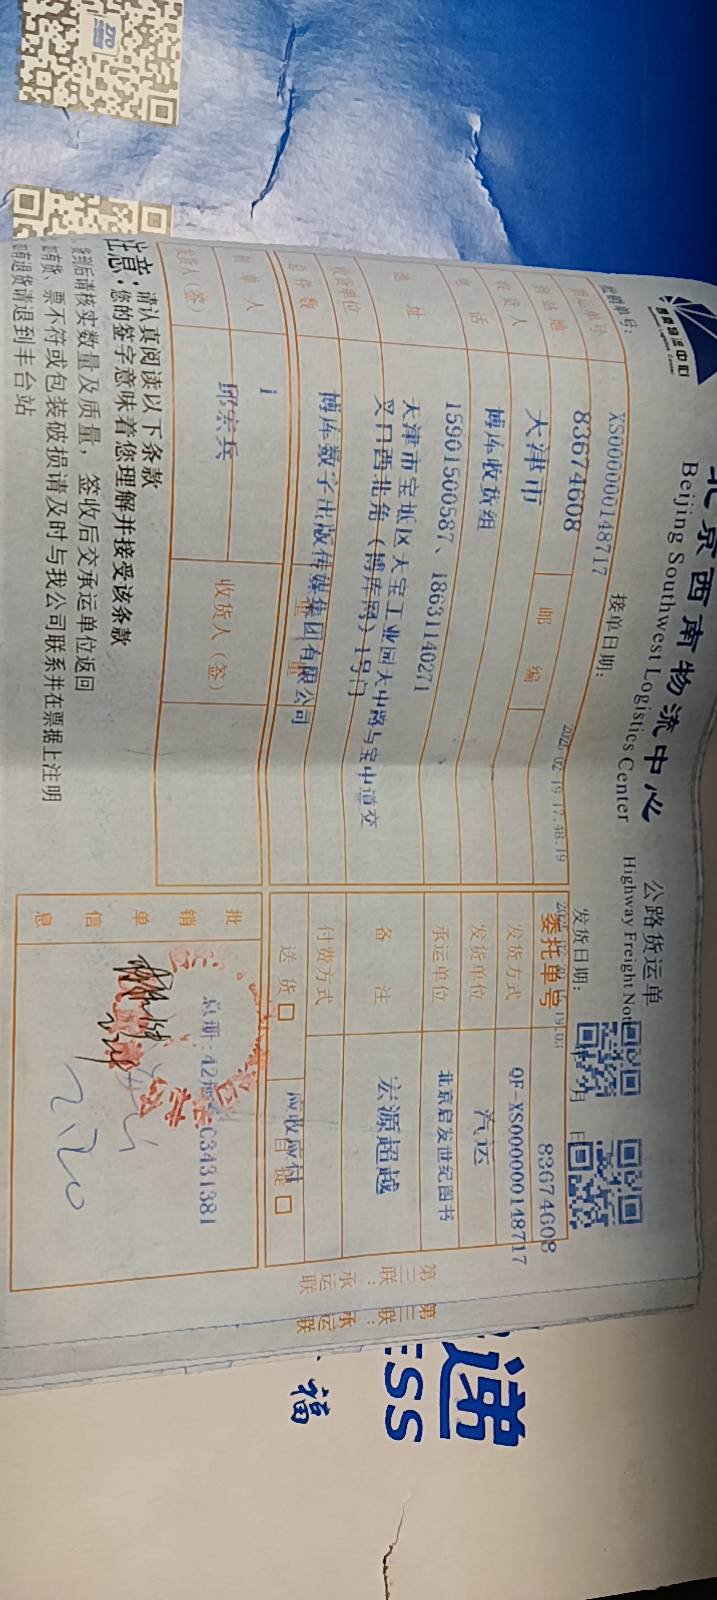 西南物流中心
北京西南物流中心
Beijing Southwest Logistics Center
公路货运单
Highway Freight Note
XS0000000148717
接单日期:
17.48.19
发货日期:
年 月 日
货运单号
83674608
委托单号
83674608
到站地
天津市
邮 编
发货方式
QF-XS0000000148717
收货人
博库收货组
发货单位
汽运
电 话
15901500587、18631140271
承运单位
北京启发世纪图书
地 址
天津市宝坻区天宝工业园天中路与宝中道交
叉口西北角(博库网)1号门
备 注
宏源超越
收货单位
博库数字出版传媒集团有限公司
付费方式
总件数
1
送 货
应收应付
自 提
制单人
邱宏兵
收货人(签)
发货人(签)
批 销 单 信 息
总册:42
C3431381
第三联:承运联
第三联:承运联
注意:
请认真阅读以下条款
您的签字意味着您理解并接受该条款
货到后请核实数量及质量，签收后交承运单位返回
如有货、票不符或包装破损请及时与我公司联系并在票据上注明
如有退货请退到丰台站
递
ESS
福